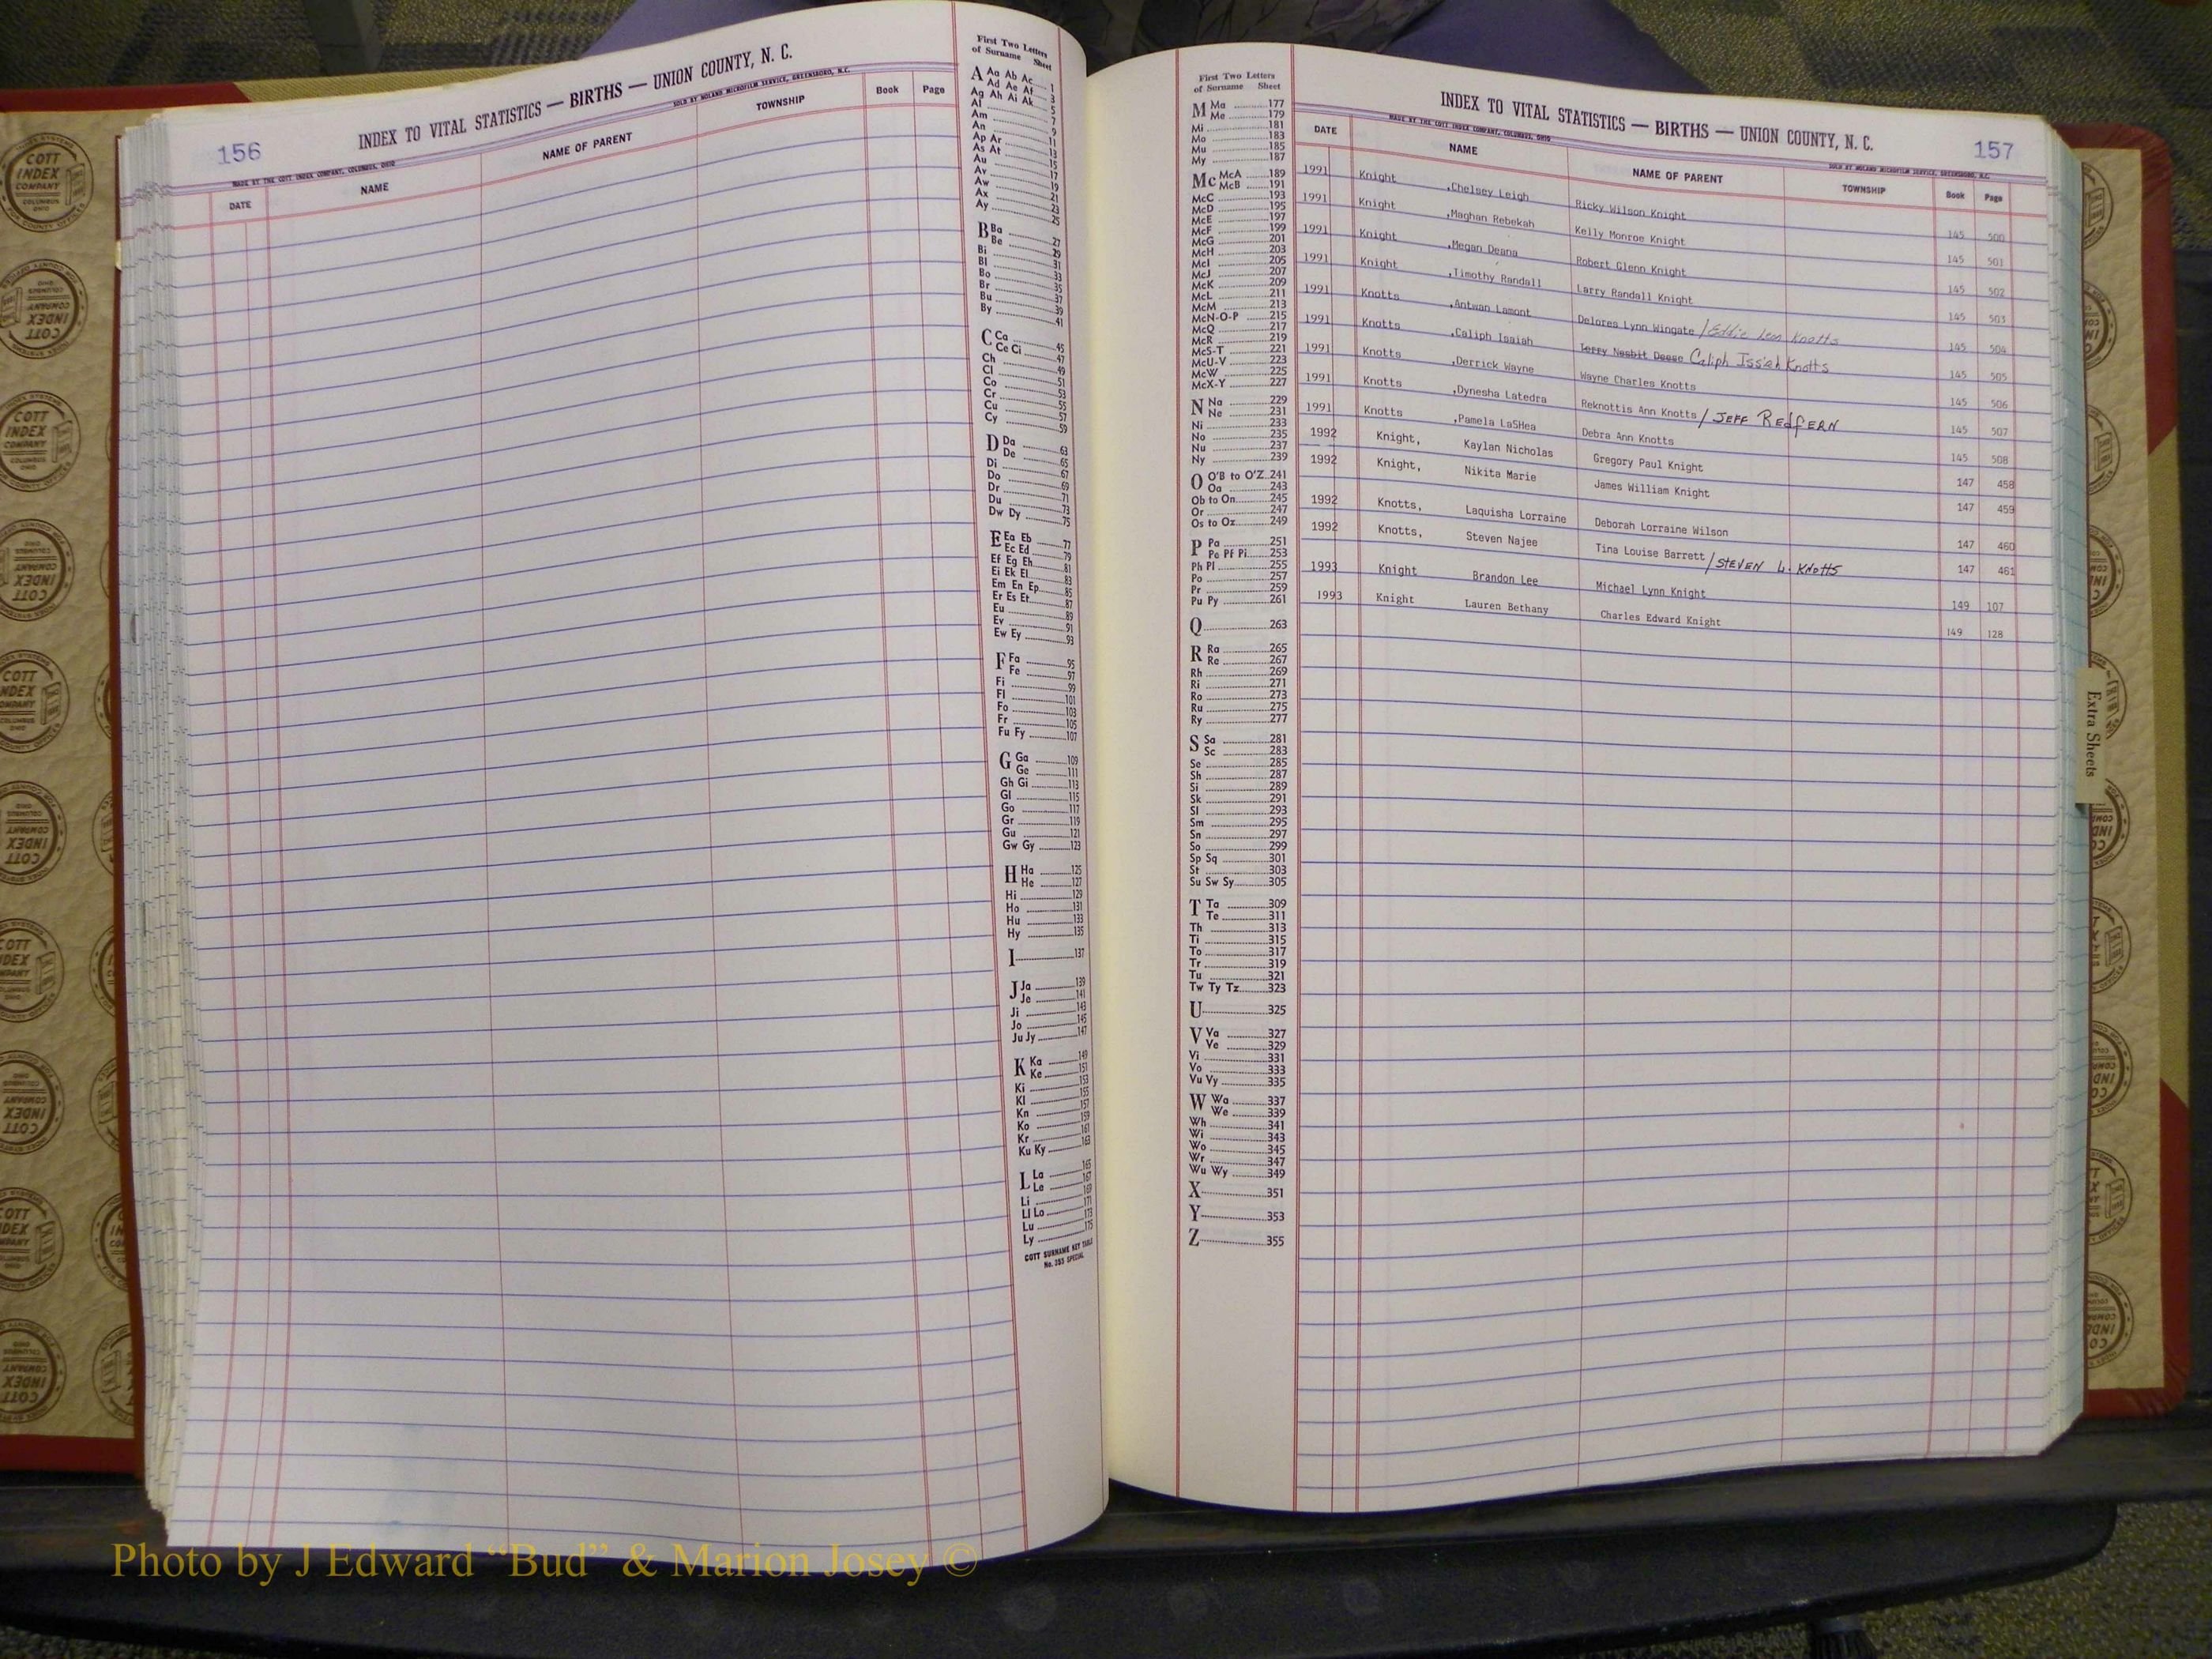 156
INDEX TO VITAL STATISTICS — BIRTHS — UNION COUNTY, N. C.
MADE BY THE COTT INDEX COMPANY, COLUMBUS, OHIO
SOLD BY NOLAND MICROFILM SERVICE, GREENSBORO, N.C.
DATE NAME NAME OF PARENT TOWNSHIP Book Page
First Two Letters
of Surname Sheet
A Aa Ab Ac 1
Ad Ae Af 3
Ag Ah Ai Ak 5
Al 7
Am 9
An 11
Ap Ar 13
As At 15
Au 17
Av 19
Aw 21
Ax 23
Ay 25
B Ba 27
Be 29
Bi 31
Bl 33
Bo 35
Br 37
Bu 39
By 41
C Ca 45
Ce Ci 47
Ch 49
Cl 51
Co 53
Cr 55
Cu 57
Cy 59
D Da 63
De 65
Di 67
Do 69
Dr 71
Du 73
Dw Dy 75
E Ea Eb 77
Ec Ed 79
Ef Eg Eh 81
Ei Ek El 83
Em En Ep 85
Er Es Et 87
Eu 89
Ev 91
Ew Ey 93
F Fa 95
Fe 97
Fi 99
Fl 101
Fo 103
Fr 105
Fu Fy 107
G Ga 109
Ge 111
Gh Gi 113
Gl 115
Go 117
Gr 119
Gu 121
Gw Gy 123
H Ha 125
He 127
Hi 129
Ho 131
Hu 133
Hy 135
I 137
J Ja 139
Je 141
Ji 143
Jo 145
Ju Jy 147
K Ka 149
Ke 151
Ki 153
Kl 155
Kn 157
Ko 159
Kr 161
Ku Ky 163
L La 165
Le 167
Li 169
Ll Lo 171
Lu 173
Ly 175
COTT SURNAME KEY TABLE
No. 353 SPECIAL
First Two Letters
of Surname Sheet
M Ma 177
Me 179
Mi 181
Mo 183
Mu 185
My 187
Mc McA 189
McB 191
McC 193
McD 195
McE 197
McF 199
McG 201
McH 203
McI 205
McJ 207
McK 209
McL 211
McM 213
McN-O-P 215
McQ 217
McR 219
McS-T 221
McU-V 223
McW 225
McX-Y 227
N Na 229
Ne 231
Ni 233
No 235
Nu 237
Ny 239
O O'B to O'Z 241
Oa 243
Ob to On 245
Or 247
Os to Oz 249
P Pa 251
Pe Pf Pi 253
Ph Pl 255
Po 257
Pr 259
Pu Py 261
Q 263
R Ra 265
Re 267
Rh 269
Ri 271
Ro 273
Ru 275
Ry 277
S Sa 281
Sc 283
Se 285
Sh 287
Si 289
Sk 291
Sl 293
Sm 295
Sn 297
So 299
Sp Sq 301
St 303
Su Sw Sy 305
T Ta 309
Te 311
Th 313
Ti 315
To 317
Tr 319
Tu 321
Tw Ty Tz 323
U 325
V Va 327
Ve 329
Vi 331
Vo 333
Vu Vy 335
W Wa 337
We 339
Wh 341
Wi 343
Wo 345
Wr 347
Wu Wy 349
X 351
Y 353
Z 355
INDEX TO VITAL STATISTICS — BIRTHS — UNION COUNTY, N. C.
157
MADE BY THE COTT INDEX COMPANY, COLUMBUS, OHIO
SOLD BY NOLAND MICROFILM SERVICE, GREENSBORO, N.C.
DATE NAME NAME OF PARENT TOWNSHIP Book Page
1991 Knight ,Chelsey Leigh Ricky Wilson Knight 145 500
1991 Knight ,Maghan Rebekah Kelly Monroe Knight 145 501
1991 Knight ,Megan Deana Robert Glenn Knight 145 502
1991 Knight ,Timothy Randall Larry Randall Knight 145 503
1991 Knotts ,Antwan Lamont Delores Lynn Wingate / Eddie Leon Knotts 145 504
1991 Knotts ,Caliph Isaiah Terry Nesbit Deese Caliph Issiah Knotts 145 505
1991 Knotts ,Derrick Wayne Wayne Charles Knotts 145 506
1991 Knotts ,Dynesha Latedra Reknottis Ann Knotts / JEFF REdfERN 145 507
1991 Knotts ,Pamela LaSHea Debra Ann Knotts 145 508
1992 Knight, Kaylan Nicholas Gregory Paul Knight 147 458
1992 Knight, Nikita Marie James William Knight 147 459
1992 Knotts, Laquisha Lorraine Deborah Lorraine Wilson 147 460
1992 Knotts, Steven Najee Tina Louise Barrett / STEVEN L. KNOttS 147 461
1993 Knight Brandon Lee Michael Lynn Knight 149 107
1993 Knight Lauren Bethany Charles Edward Knight 149 128
Extra Sheets
COTT
INDEX
COMPANY
COLUMBUS
OHIO
Photo by J Edward “Bud” & Marion Josey ©